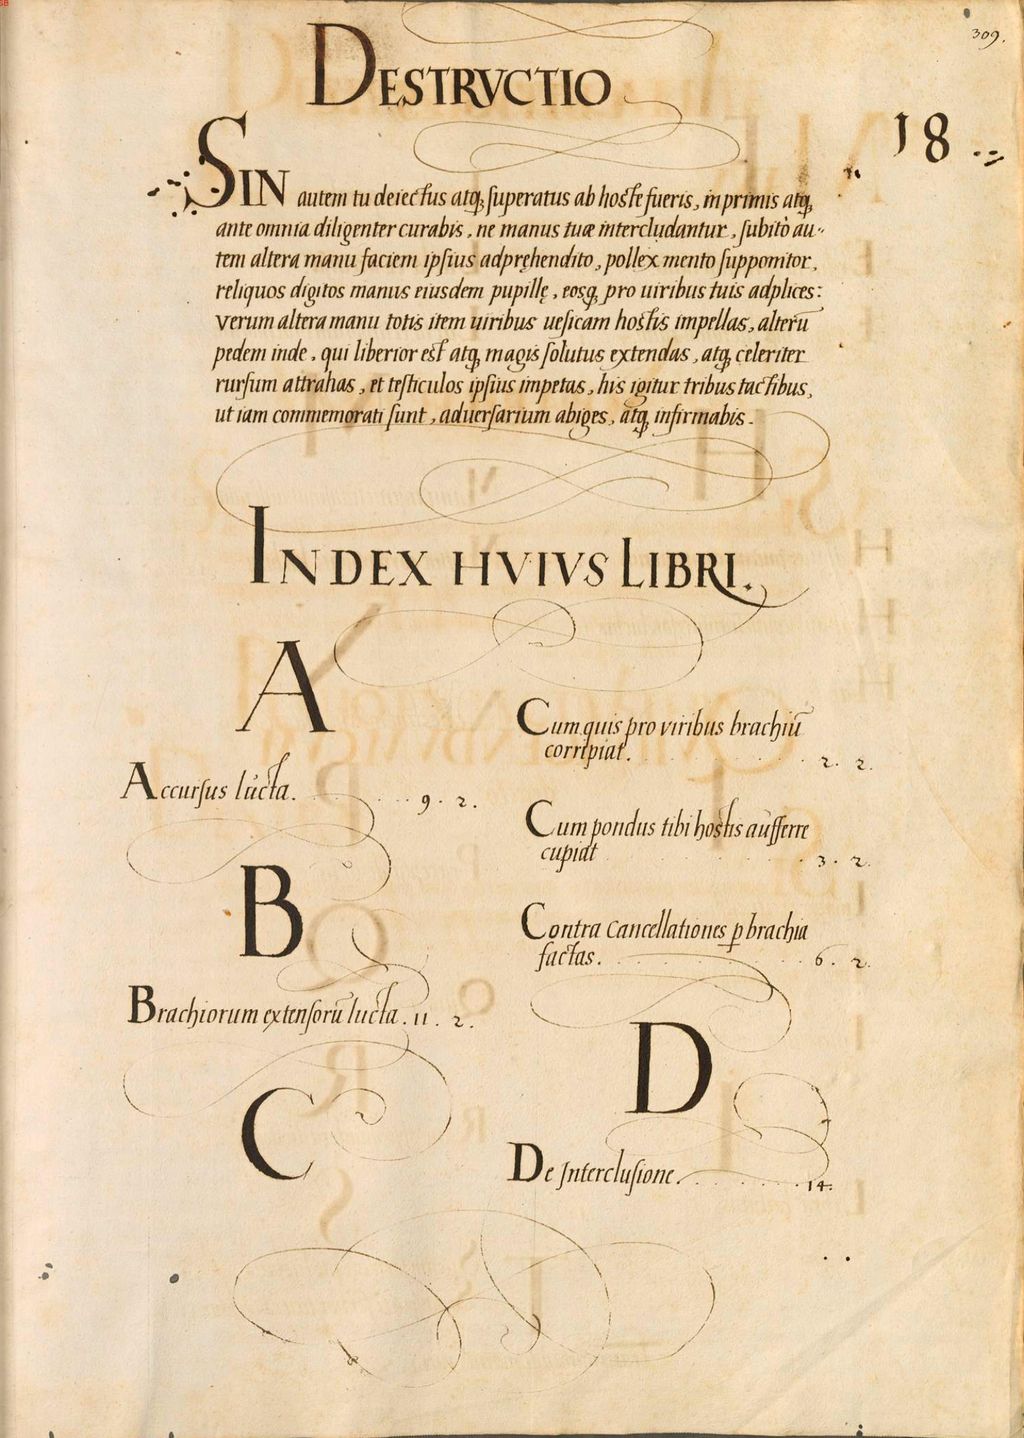 309.
DESTRVCTIO
18
SIN autem tu deiectus atq; superatus ab hoste fueris, in primis atq;
ante omnia diligenter curabis, ne manus tuæ intercludantur, subitò au-
tem altera manu faciem ipsius adpręhendito, pollex mento supponitor,
reliquos digitos manus eiusdem pupillę, eosq; pro uiribus tuis adplices:
Verum altera manu totis item uiribus uesicam hostis impellas, alterū
pedem inde, qui liberior est atq; magis solutus extendas, atq; celeriter
rursum attrahas, et testiculos ipsius impetas, his igitur tribus tactibus,
ut iam commemorati sunt, aduersarium abiges, atq; infirmabis.
INDEX HVIVS LIBRI.
A
Accursus lucta. . . . . 9. 2.
B
Brachiorum extensorū lucta. 11. 2.
C
Cum quis pro viribus brachiū
corripiat. . . . . . . 2. 2.
Cum pondus tibi hostis aufferre
cupiat . . . . . . . 3. 2.
Contra Cancellationes ꝑ brachia
factas. . . . . . . 6. 2.
D
De Interclusione. . . . . . . 14.